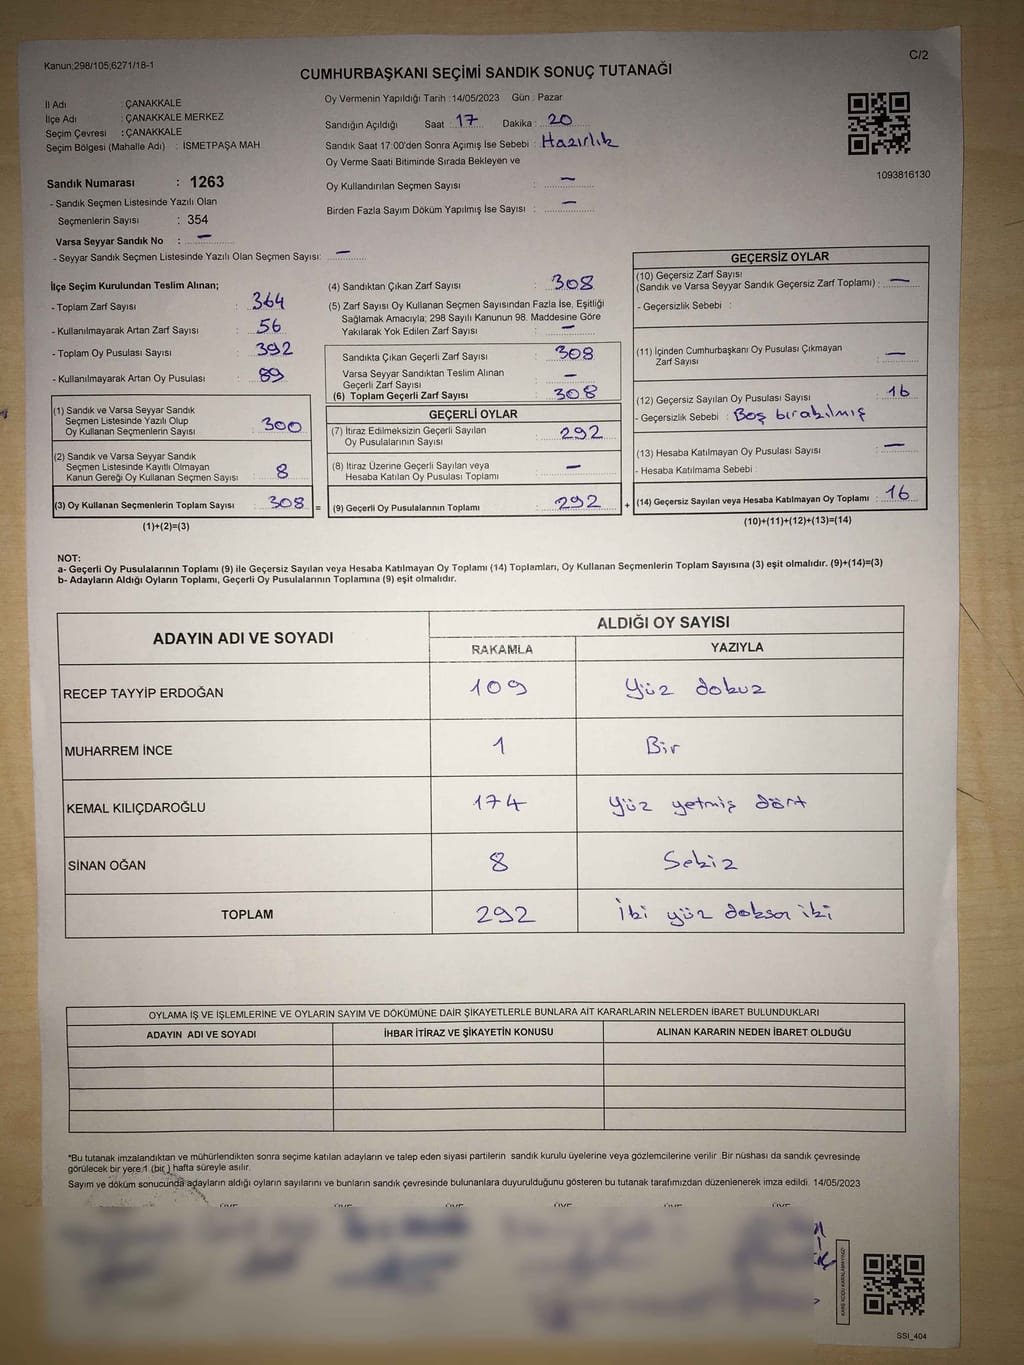 Kanun;298/105;6271/18-1
C/2
CUMHURBAŞKANI SEÇİMİ SANDIK SONUÇ TUTANAĞI
İl Adı : ÇANAKKALE
İlçe Adı : ÇANAKKALE MERKEZ
Seçim Çevresi : ÇANAKKALE
Seçim Bölgesi (Mahalle Adı) : İSMETPAŞA MAH.
Oy Vermenin Yapıldığı Tarih :14/05/2023 Gün : Pazar
Sandığın Açıldığı Saat : 17 Dakika : 20
Sandık Saat 17:00'den Sonra Açımış İse Sebebi : Hazırlık
Oy Verme Saati Bitiminde Sırada Bekleyen ve
Oy Kullandırılan Seçmen Sayısı : —
Birden Fazla Sayım Döküm Yapılmış İse Sayısı : —
1093816130
Sandık Numarası : 1263
- Sandık Seçmen Listesinde Yazılı Olan
Seçmenlerin Sayısı : 354
Varsa Seyyar Sandık No : —
- Seyyar Sandık Seçmen Listesinde Yazılı Olan Seçmen Sayısı: —
İlçe Seçim Kurulundan Teslim Alınan;
- Toplam Zarf Sayısı : 364
- Kullanılmayarak Artan Zarf Sayısı : 56
- Toplam Oy Pusulası Sayısı : 392
- Kullanılmayarak Artan Oy Pusulası : 89
(1) Sandık ve Varsa Seyyar Sandık
Seçmen Listesinde Yazılı Olup
Oy Kullanan Seçmenlerin Sayısı : 300
(2) Sandık ve Varsa Seyyar Sandık
Seçmen Listesinde Kayıtlı Olmayan
Kanun Gereği Oy Kullanan Seçmen Sayısı : 8
(3) Oy Kullanan Seçmenlerin Toplam Sayısı : 308 =
(1)+(2)=(3)
(4) Sandıktan Çıkan Zarf Sayısı : 308
(5) Zarf Sayısı Oy Kullanan Seçmen Sayısından Fazla İse, Eşitliği
Sağlamak Amacıyla; 298 Sayılı Kanunun 98. Maddesine Göre
Yakılarak Yok Edilen Zarf Sayısı : —
Sandıkta Çıkan Geçerli Zarf Sayısı : 308
Varsa Seyyar Sandıktan Teslim Alınan
Geçerli Zarf Sayısı : —
(6) Toplam Geçerli Zarf Sayısı : 308
GEÇERLİ OYLAR
(7) İtiraz Edilmeksizin Geçerli Sayılan
Oy Pusulalarının Sayısı : 292
(8) İtiraz Üzerine Geçerli Sayılan veya
Hesaba Katılan Oy Pusulası Toplamı : —
(9) Geçerli Oy Pusulalarının Toplamı : 292 +
GEÇERSİZ OYLAR
(10) Geçersiz Zarf Sayısı
(Sandık ve Varsa Seyyar Sandık Geçersiz Zarf Toplamı) : —
- Geçersizlik Sebebi :
(11) İçinden Cumhurbaşkanı Oy Pusulası Çıkmayan
Zarf Sayısı : —
(12) Geçersiz Sayılan Oy Pusulası Sayısı : 16
- Geçersizlik Sebebi : Boş bırakılmış
(13) Hesaba Katılmayan Oy Pusulası Sayısı : —
- Hesaba Katılmama Sebebi :
(14) Geçersiz Sayılan veya Hesaba Katılmayan Oy Toplamı : 16
(10)+(11)+(12)+(13)=(14)
NOT:
a- Geçerli Oy Pusulalarının Toplamı (9) ile Geçersiz Sayılan veya Hesaba Katılmayan Oy Toplamı (14) Toplamları, Oy Kullanan Seçmenlerin Toplam Sayısına (3) eşit olmalıdır. (9)+(14)=(3)
b- Adayların Aldığı Oyların Toplamı, Geçerli Oy Pusulalarının Toplamına (9) eşit olmalıdır.
ADAYIN ADI VE SOYADI
ALDIĞI OY SAYISI
RAKAMLA YAZIYLA
RECEP TAYYİP ERDOĞAN 109 Yüz dokuz
MUHARREM İNCE 1 Bir
KEMAL KILIÇDAROĞLU 174 Yüz yetmiş dört
SİNAN OĞAN 8 Sekiz
TOPLAM 292 İki yüz doksan iki
OYLAMA İŞ VE İŞLEMLERİNE VE OYLARIN SAYIM VE DÖKÜMÜNE DAİR ŞİKAYETLERLE BUNLARA AİT KARARLARIN NELERDEN İBARET BULUNDUKLARI
ADAYIN ADI VE SOYADI İHBAR İTİRAZ VE ŞİKAYETİN KONUSU ALINAN KARARIN NEDEN İBARET OLDUĞU
*Bu tutanak imzalandıktan ve mühürlendikten sonra seçime katılan adayların ve talep eden siyasi partilerin sandık kurulu üyelerine veya gözlemcilerine verilir. Bir nüshası da sandık çevresinde
görülecek bir yere 1 (bir ) hafta süreyle asılır.
Sayım ve döküm sonucunda adayların aldığı oyların sayılarını ve bunların sandık çevresinde bulunanlara duyurulduğunu gösteren bu tutanak tarafımızdan düzenlenerek imza edildi. 14/05/2023
ÜYE ÜYE ÜYE ÜYE ÜYE ÜYE
KARE KODU KARALAMAYINIZ!
SSI_404